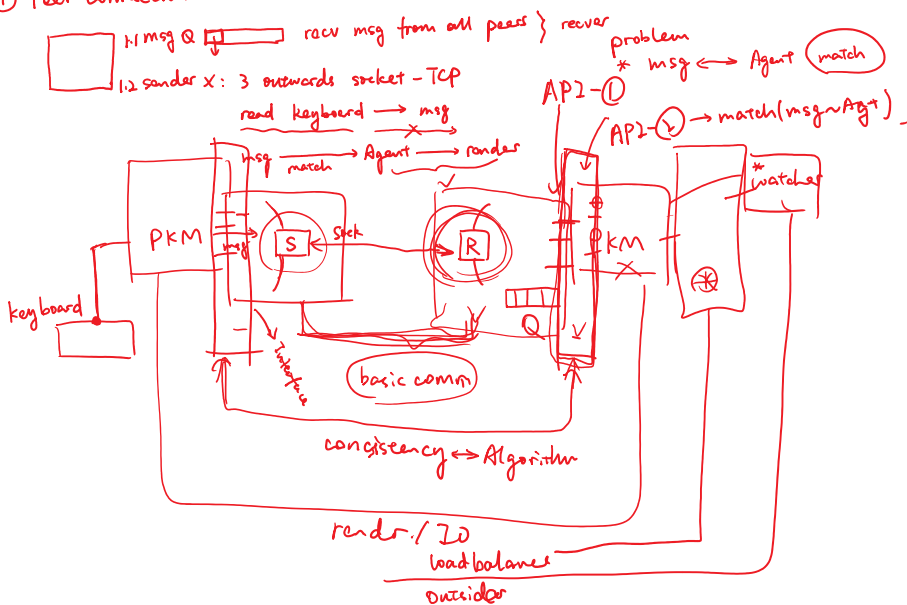 1.1 msg Q recv msg from all peers } recver
1.2 sender x: 3 outwards socket - TCP
read keyboard → msg
msg → Agent → render
match
problem
* msg ↔ Agent match
API-①
API-② → match(msg~Agt)
* watcher
PKM
msg
S
Sock
R
PKM
keyboard
Interface
Q
basic comm
consistency ↔ Algorithm
render / IO
loadbalance
outsider